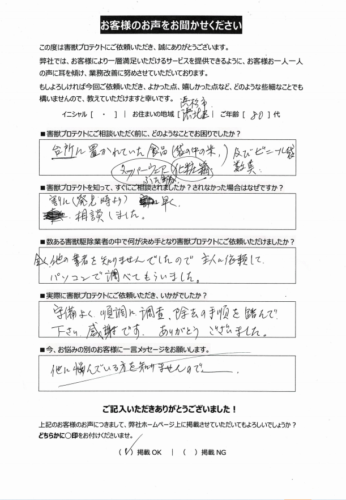 お客様のお声をお聞かせください
この度は害獣プロテクトにご依頼いただき、誠にありがとうございます。
弊社では、お客様により一層満足いただけるサービスを提供できるように、お客様お一人一人
の声に耳を傾け、業務改善に努めさせていただいております。
もしよろしければ今回ご依頼いただき、よかった点、嬉しかった点など、どのような些細なことでも
構いませんので、教えていただけますと幸いです。
浜松市
イニシャル [ ・ ] | お住まいの地域 [ 浜北区 ] ご年齢 [ 80 ] 代
■害獣プロテクトにご相談いただく前に、どのようなことでお困りでしたか？
台所に置かれていた食品(袋の中の米,) 及びビニール袋
化粧箱
■害獣プロテクトを知って、すぐにご相談されましたか？されなかった場合はなぜですか？
割に(発見時より) 早く
相談しました。
■数ある害獣駆除業者の中で何が決め手となり害獣プロテクトにご依頼いただけましたか？
全く他の業者を知りませんでしたので 主人に依頼して
パソコンで調べてもらいました。
■実際に害獣プロテクトにご依頼いただき、いかがでしたか？
守備よく 順調に調査、除去の手順を踏んで
下さり、感謝です。ありがとうございました。
■今、お悩みの別のお客様に一言メッセージをお願いします。
他に悩んでいる方を知りませんので
ご記入いただきありがとうございました！
上記のお客様のお声につきまして、弊社ホームページ上に掲載させていただいてもよろしいでしょうか？
どちらかに〇印をお付けくださいませ。
( ✓ ) 掲載 OK | ( ) 掲載 NG